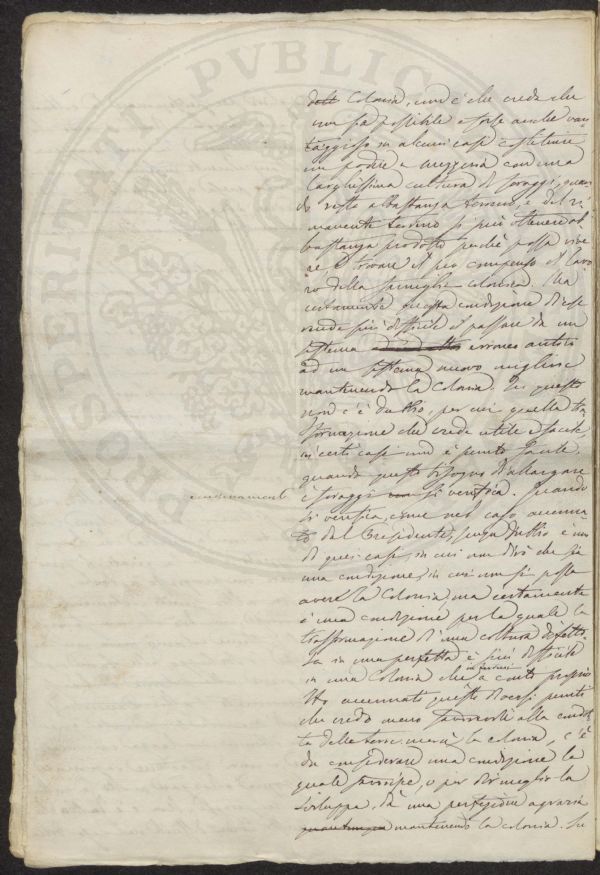 PROSPERITATI PVBLICAE
Colonia, cioè che credo che
non sia possibile e forse anche van
taggioso in alcuni casi costituire
un podere a mezzeria con una
larghissima cultura di foraggi, quan
do resta abbastanza terreno, e dal ri
manente terreno si può ottenere ab
bastanza prodotto perchè possa vive
re, e trovare il suo compenso il lavo
ro della famiglia colonica. Ma
certamente questa condizione di cose
rende più difficile il passare da un
sistema erroneo antico
ad un sistema nuovo migliore
mantenendo la Colonia. Su questo
non c'è dubbio, per cui quella tra
sformazione che credo utile e facile
in certi casi non è punto facile
quando questo bisogno d'allargare
i foraggi si verifica. Quando
si verifica, come nel caso accenna
to dal Presidente, senza dubbio è uno
di quei casi, in cui non dirò che sia
una condizione, in cui non si possa
avere la Colonia, ma certamente
è una condizione per la quale la
trasformazione d'una coltura difetto
sa in una perfetta è più difficile
in una Colonia che a conto proprio
Ho accennato questi diversi punti
che credo meno favorevoli alla condot
ta delle terre la colonia, c'è
da considerare una condizione la
quale, o per dir meglio la
sviluppa, dà una perfezione agraria
mantenendo la colonia. Su